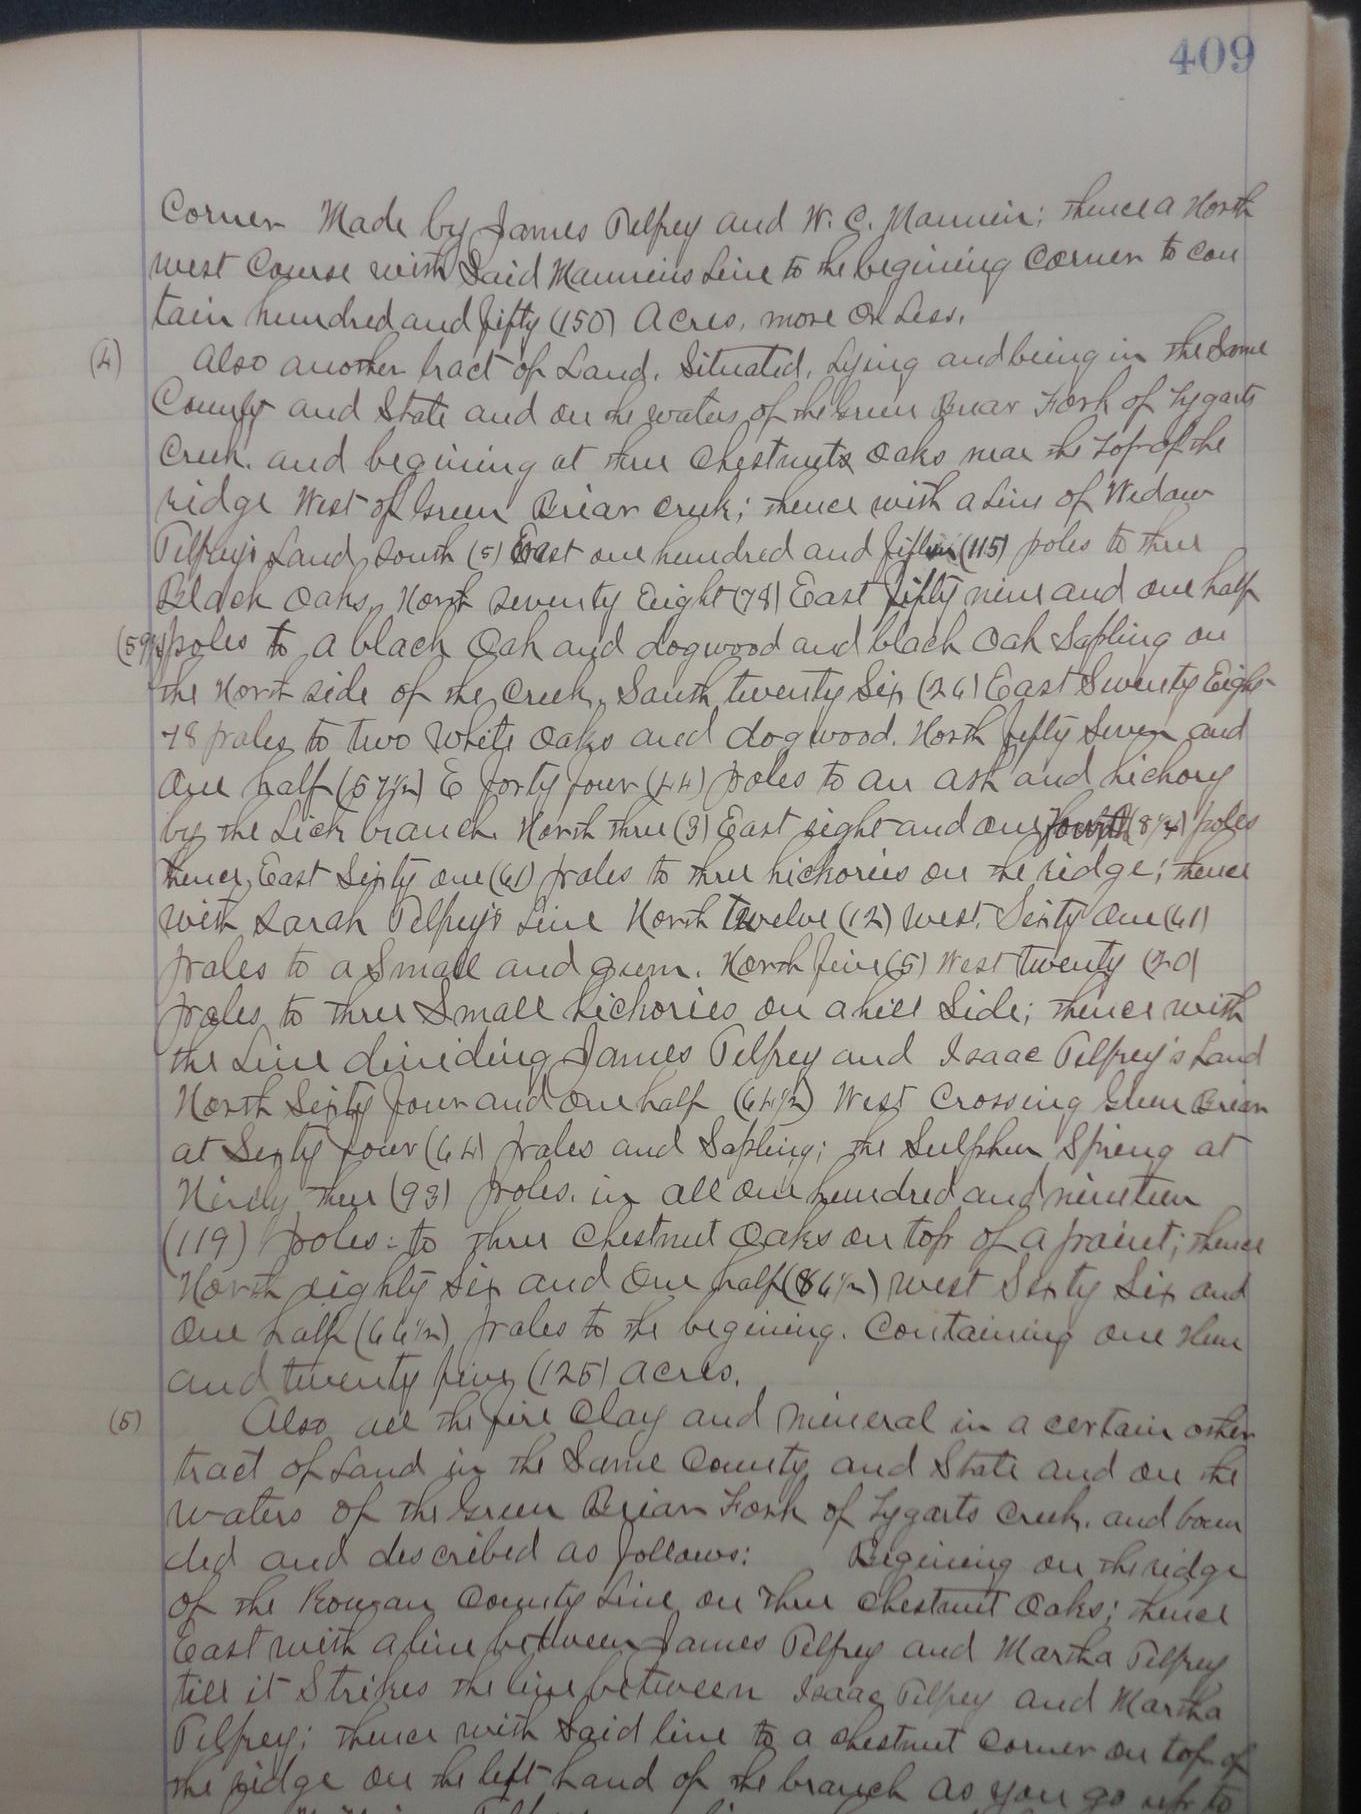 409
Corner Made by James Pelfrey and W. C. Mannin; thence a North
west Course with Said Mannins Line to the begining Corner to con
tain hundred and fifty (150) Acres, more or Less.
(4) Also another tract of Land, Situated, Lying and being in the Same
County and State and on the waters of the Green Briar Fork of Tygarts
Creek, and begining at three Chestnuts Oaks near the top of the
ridge West of Green Briar creek; thence with a Line of Wedaw
Pelfreys Land South (5) East one hundred and fifteen (115) poles to three
Black Oaks, North Seventy Eight (78) East fifty nine and one half
(59½) poles to a black Oak and dogwood and black Oak Sapling on
the North side of the Creek, South twenty Six (26) East Seventy Eight
78 poles to two White Oaks and dogwood. North fifty Seven and
One half (57½) E forty four (44) poles to an ash and hickory
by the Lick branch. North three (3) East eight and one fourth (8¼) poles
thence East Sixty one (61) poles to three hickories on the ridge; thence
with Sarah Pelfrey's Line North twelve (12) west, Sixty One (61)
poles to a Small and gum. North five (5) West twenty (20)
poles to three Small hickories on a hill Side; thence with
the Line dividing James Pelfrey and Isaac Pelfrey's Land
North Sixty four and One half (64½) West Crossing Green Briar
at Sixty four (64) poles and Sapling; the Sulphur Spring at
three (93) poles. in all one hundred and nineteen
(119) poles: to three Chestnut Oaks on top of a point; thence
North eighty Six and One half (86½) west Sixty Six and
One half (66½) poles to the begining. Containing one Hun
and twenty five (125) acres.
(5) Also all the fire Clay and mineral in a certain other
tract of Land in the Same County and State and on the
waters of the Green Briar Fork of Tygarts Creek, and boun
ded and described as follows: Begining on the ridge
of the Rowan County Line on three Chestnut Oaks; thence
East with a line between James Pelfrey and Martha Pelfrey
till it Strikes the line between Isaac Pelfrey and Martha
Pelfrey; thence with Said line to a chestnut Corner on top of
the ridge on the left hand of the branch as you go up to